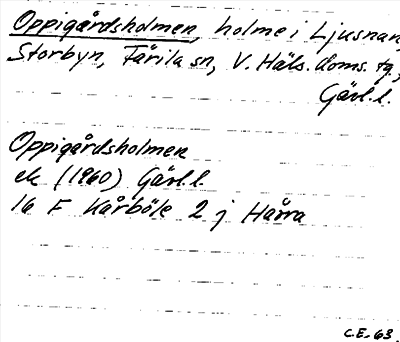 Oppigårdsholmen, holme i Ljusnan,
Storbyn, Färila sn, V. Häls. doms. tg.,
Gävl.l.
Oppigårdsholmen
ek (1960) Gävl.l.
16 F Kårböle 2 j Hårra
C.E.-63.